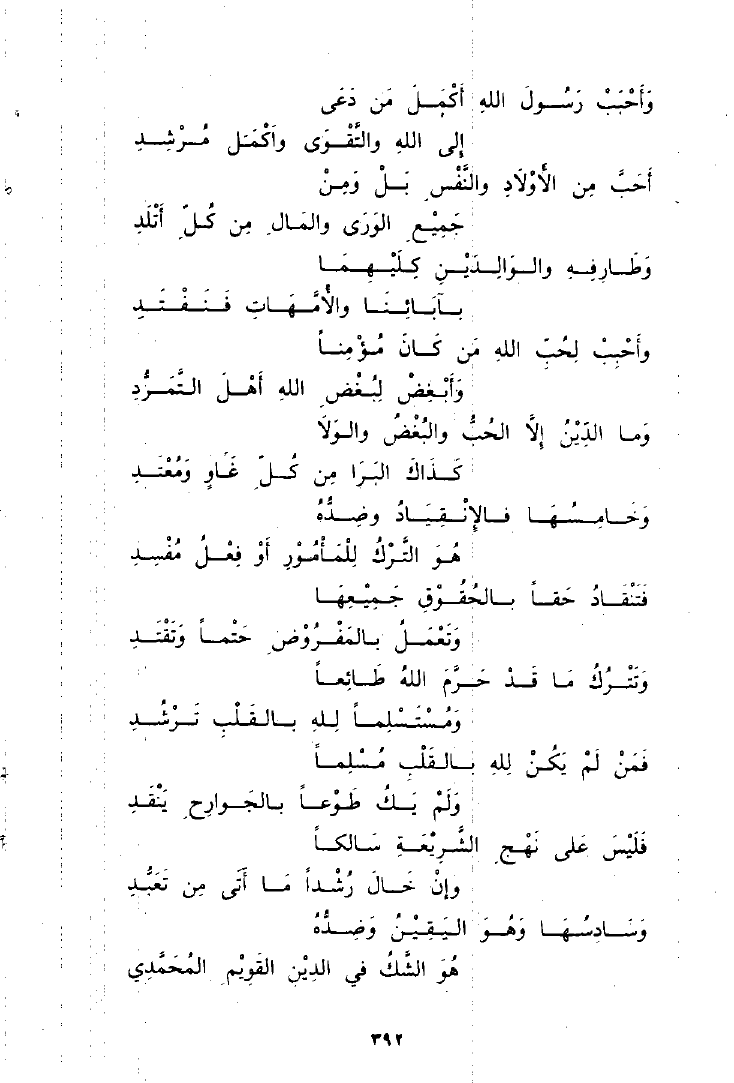 وَأَحْبَبْ رَسُولَ اللهِ أَكْمَلَ مَن دَعَى
إِلى اللهِ والتَّقْوَى وأَكْمَل مُرْشِدِ
أَحَبَّ مِن الأَوْلَادِ والنَّفْسِ بَلْ وَمِنْ
جَمِيْعِ الوَرَى والمَالِ مِن كُلِّ أَتْلَدِ
وَطَارِفِهِ والوَالِدَيْنِ كِلَيْهِمَا
بآبَائِنَا والأُمَّهَاتِ فَنَفْتَدِ
وأَحْبِبْ لِحُبِّ اللهِ مَن كَانَ مُؤْمِناً
وَأَبْغِضْ لِبُغْضِ اللهِ أَهْلَ التَّمَرُّدِ
وَما الدِّيْنُ إِلَّا الحُبُّ والبُغْضُ والوَلَا
كَذَاكَ البَرَا مِن كُلِّ غَاوٍ وَمُعْتَدِ
وَخَامِسُهَا فالإِنْقِيَادُ وضِدُّهُ
هُوَ التَّرْكُ لِلْمَأْمُوْرِ أَوْ فِعْلُ مُفْسِدِ
فَتَنْقَادُ حَقاً بالحُقُوْقِ جَمِيْعِهَا
وَتَعْمَلُ بالمَفْرُوْضِ حَتْماً وَتَقْتَدِ
وَتَتْرُكُ مَا قَدْ حَرَّمَ اللهُ طَائِعاً
وَمُسْتَسْلِماً لِلهِ بالقَلْبِ تَرْشُدِ
فَمَنْ لَمْ يَكُنْ لِلهِ بالقَلْبِ مُسْلِماً
وَلَمْ يَكُ طَوْعاً بالجَوارِحِ يَنْقَدِ
فَلَيْسَ عَلى نَهْجِ الشَّرِيْعَةِ سَالكاً
وإِنْ خَالَ رُشْداً مَا أَتَى مِن تَعَبُّدِ
وَسَادِسُهَا وَهُوَ اليَقِيْنُ وَضِدُّهُ
هُوَ الشَّكُ في الدِيْنِ القَوِيْمِ المُحَمَّدِي
٣٩٢